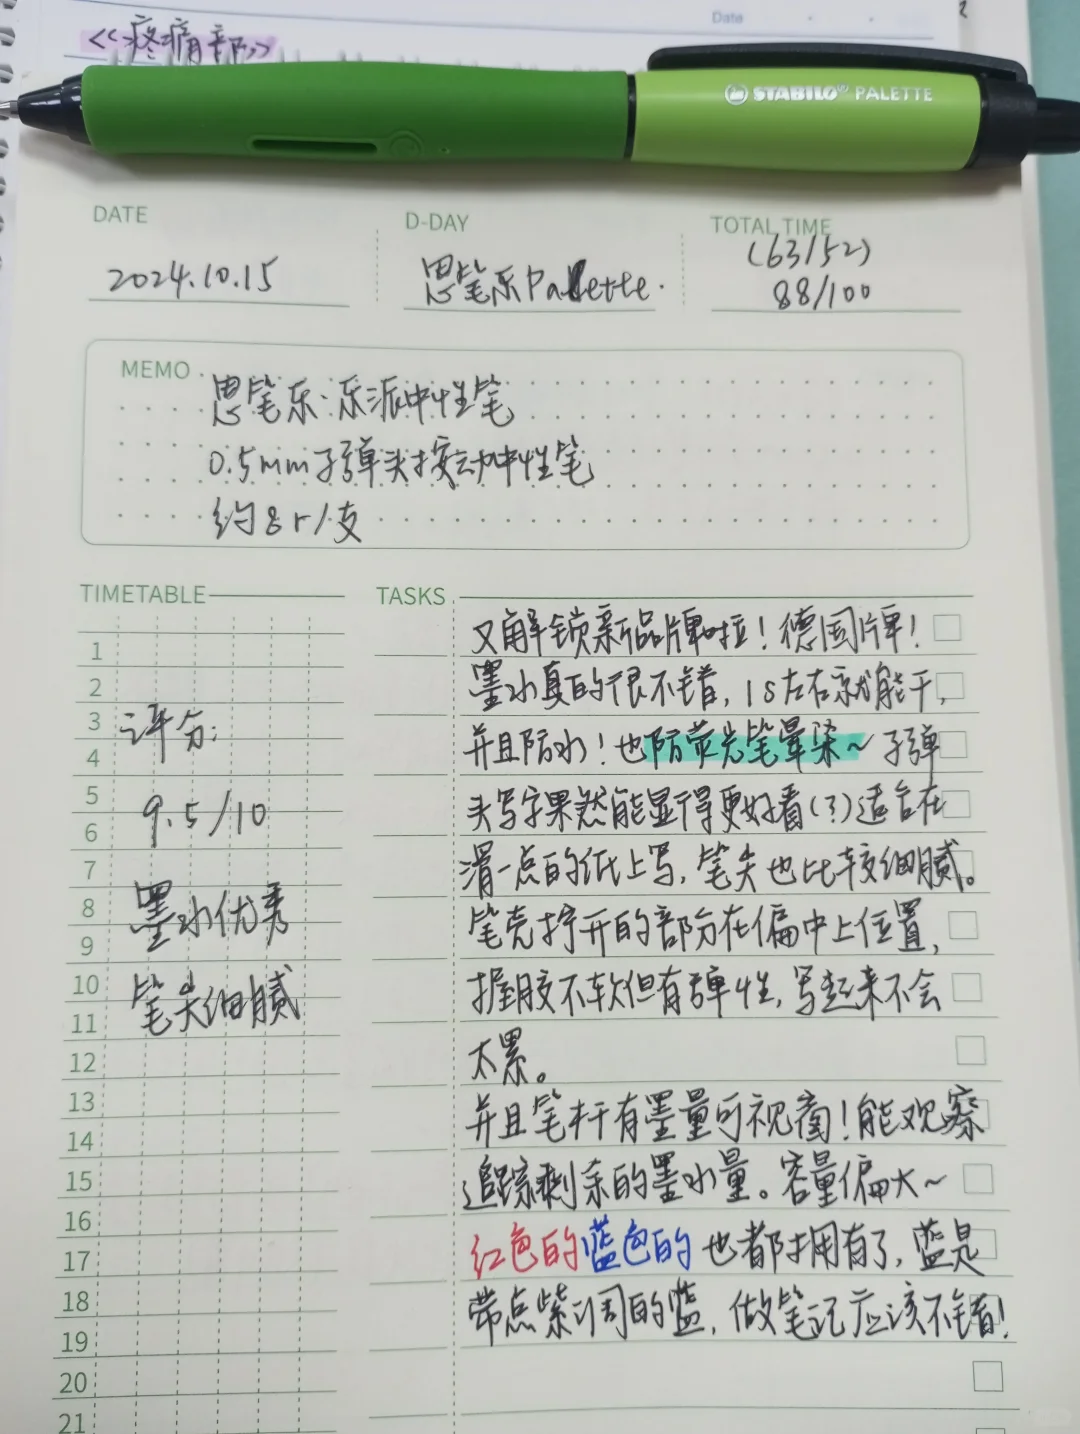 Date
《疼痛部》
STABILO PALETTE
DATE
D-DAY
TOTAL TIME
2024.10.15
思笔乐Palette.
(63/52)
88/100
MEMO
思笔乐·乐派中性笔
0.5mm子弹头按动中性笔
约8r/支
TIMETABLE
TASKS
1
2
3
4
5
6
7
8
9
10
11
12
13
14
15
16
17
18
19
20
21
评分:
9.5/10
墨水优秀
笔尖细腻
又解锁新品牌啦!德国牌!
墨水真的很不错,1s左右就能干,
并且防水!也防荧光笔晕染~子弹
头写字果然能显得更好看(?)适合在
滑一点的纸上写,笔尖也比较细腻。
笔壳拧开的部分在偏中上位置,
握胶不软但有弹性,写起来不会
太累。
并且笔杆有墨量可视窗!能观察
追踪剩余的墨水量。容量偏大~
红色的蓝色的也都拥有了,蓝是
带点紫调的蓝,做笔记应该不错!